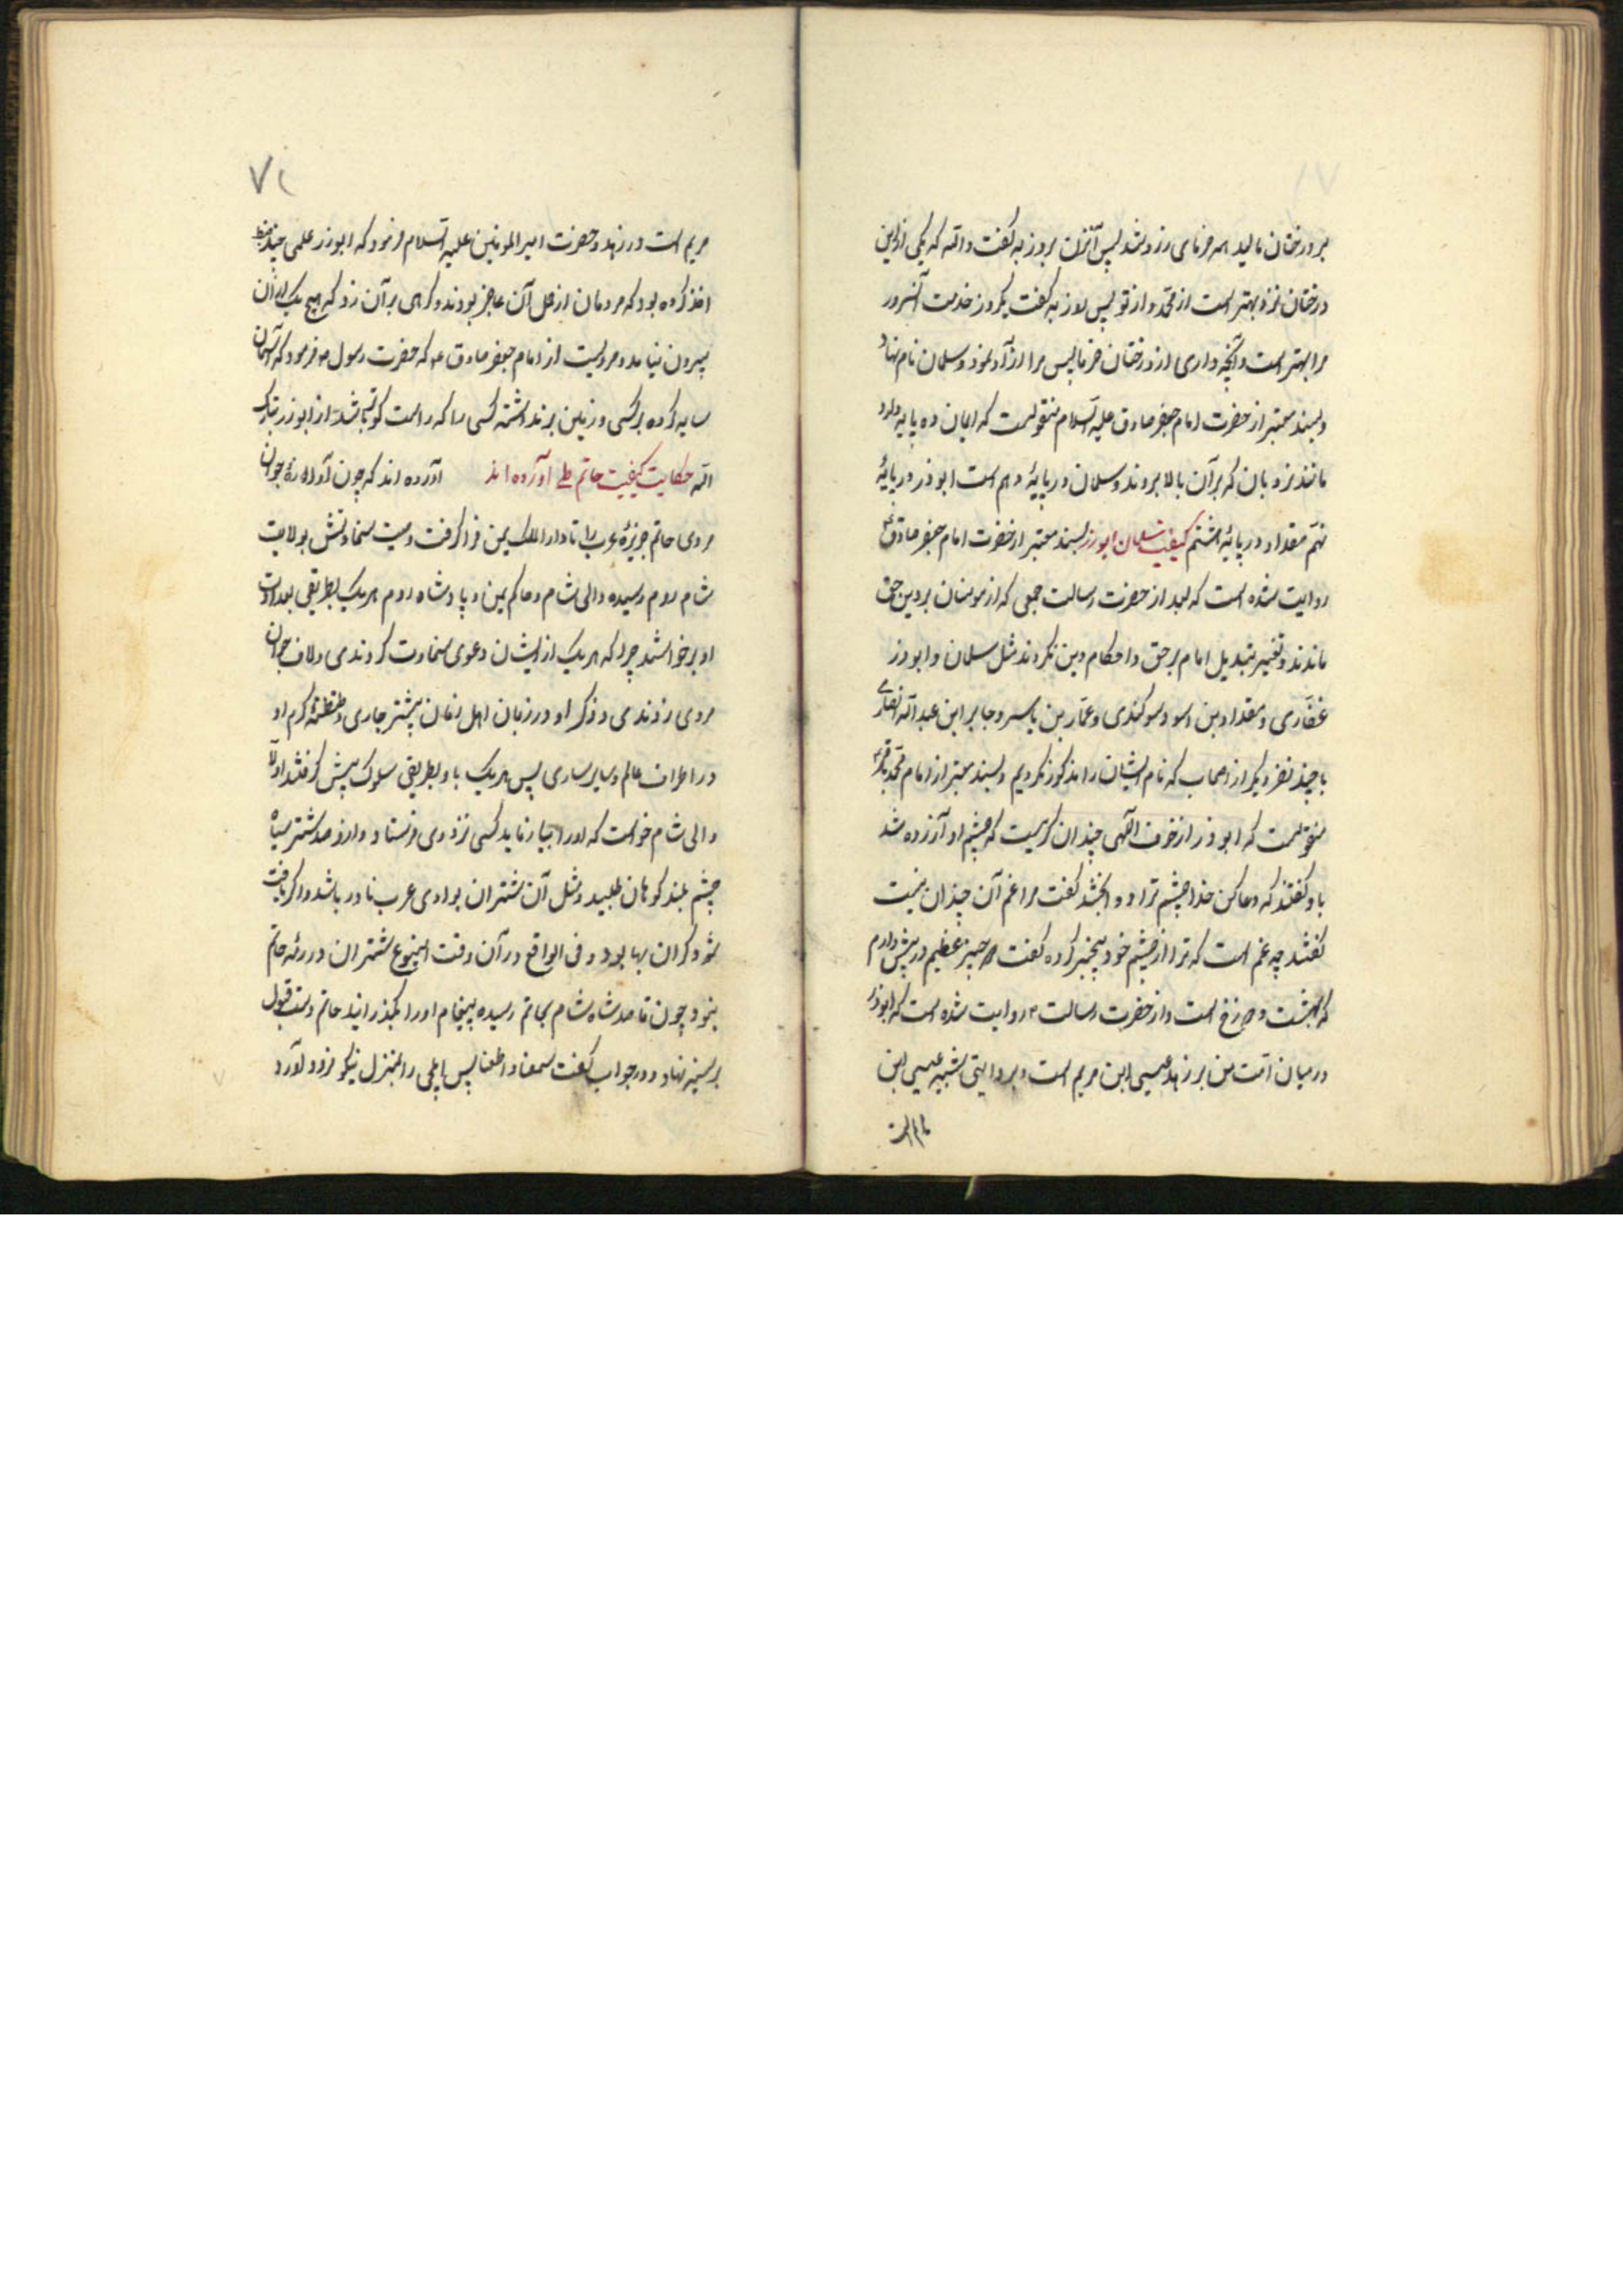 بر درختان مالید همه خرمای زرد شد پس آنزن بروزبه گفت والله که یکی ازین
درختان نزد من بهتر است از محمد و از تو پس روزبه گفت یکروز خدمت آنسرور
مرا بهتر است و آنچه داری از درختان خرما پس مرا آزاد نمود و سلمان نام نهاد
و بسند معتبر از حضرت امام جعفر صادق علیه السلام منقولست که ایمان ده پایه دارد
مانند نردبان که بر آن بالا بروند و سلمان در پایهٔ دهم است ابوذر در پایهٔ
نهم مقداد در پایهٔ هشتم کیفیت سلمان ابوذر بسند معتبر از حضرت امام جعفر صادق ع
روایت شده است که بعد از حضرت رسالت جمعی که از مومنان بر دین حق
ماندند و تغییر تبدیل امام بر حق و احکام دین نکردند مثل سلمان و ابوذر
غفاری و مقداد بن اسود کندی و عمار بن یاسر و جابر ابن عبدالله انصاری
با چند نفر دیگر از اصحاب که نام ایشان را مذکور نکردیم و بسند معتبر از امام محمد باقر
منقولست که ابوذر از خوف الهی چندان گریست که چشم او آزرده شد
باو گفتند که دعا کن خدا چشم ترا دوا بخشد گفت مرا غم آن چندان نیست
گفتند چه غم است که ترا از چشم خود بیخبر کرده گفت دو چیز عظیم در پیش دارم
که بهشت و دوزخ است و از حضرت رسالت م روایت شده است که ابوذر
در میان امت من بر زهد عیسی ابن مریم است و بروایتی شبیه عیسی ابن
۷۱
مریم است در زهد و حضرت امیرالمومنین علیه السلام فرمود که ابوذر علمی چند
اخذ کرده بود که مردمان از حمل آن عاجز بودند و گرهی بر آن زد که هیچ یک از آن
بیرون نیامد و مرویست از امام جعفر صادق ع که حضرت رسول ص فرمود که آسمان
سایه کرده بر کسی و زمین برنداشته کسی را که راست گوتر باشد از ابوذر
حکایت کیفیت حاتم طی آورده اند آورده اند که چون آوازهٔ جوان
مردی حاتم جزیرهٔ عرب را تا دارالملک یمن فراگرفت وصیت سخاوتش بولایت
شام روم رسیده والی شام و حاکم یمن و پادشاه روم هریک بطریقی بعداوت
او برخواستند چرا که هریک از ایشان دعوی سخاوت کردندی و لاف جوان
مردی زدندی و ذکر او در زبان اهل زمان بیشتر جاری و طنطنهٔ کرم او
در اطراف عالم و سایر ساری پس هریک باو بطریقی سلوک پیش گرفتند اولا
والی شام خواست که او را بیازماید کسی نزد وی فرستاد و از او صد شتر سیاه
چشم بلند کوهان طلبید و مثل آن شتران بوادی عرب نادر باشد و اگر یافت
شود گران بها بود و فی الواقع در آن وقت اینوع شتران در رمهٔ حاتم
نبود چون قاصد شاه شام بحاتم رسیده پیغام او را بگذرانید حاتم دست قبول
بر سینه نهاد و در جواب گفت سمعنا و اطعنا پس ایلچی را بمنزل نیکو فرود آورد